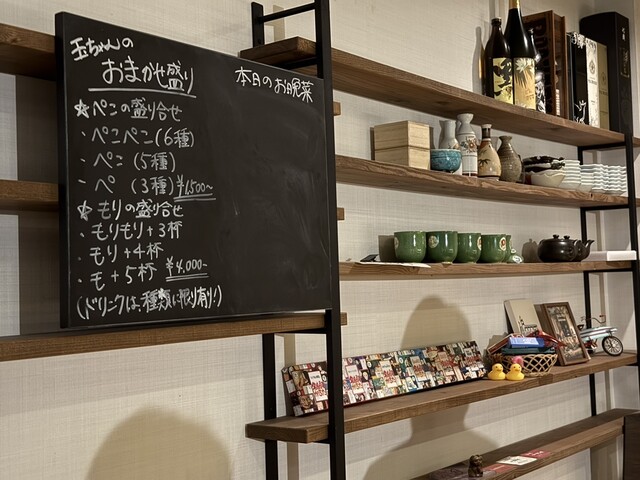 玉ちゃんの
おまかせ盛り
本日のお晩菜
☆ぺこの盛り合せ
・ぺこぺこ(6種)
・ぺこ(5種)
・ぺ(3種)¥1,500~
☆もりの盛り合せ
・もりもり+3杯
・もり+4杯
・モ+5杯 ¥4,000~
(ドリンクは、種類に限り有り!)